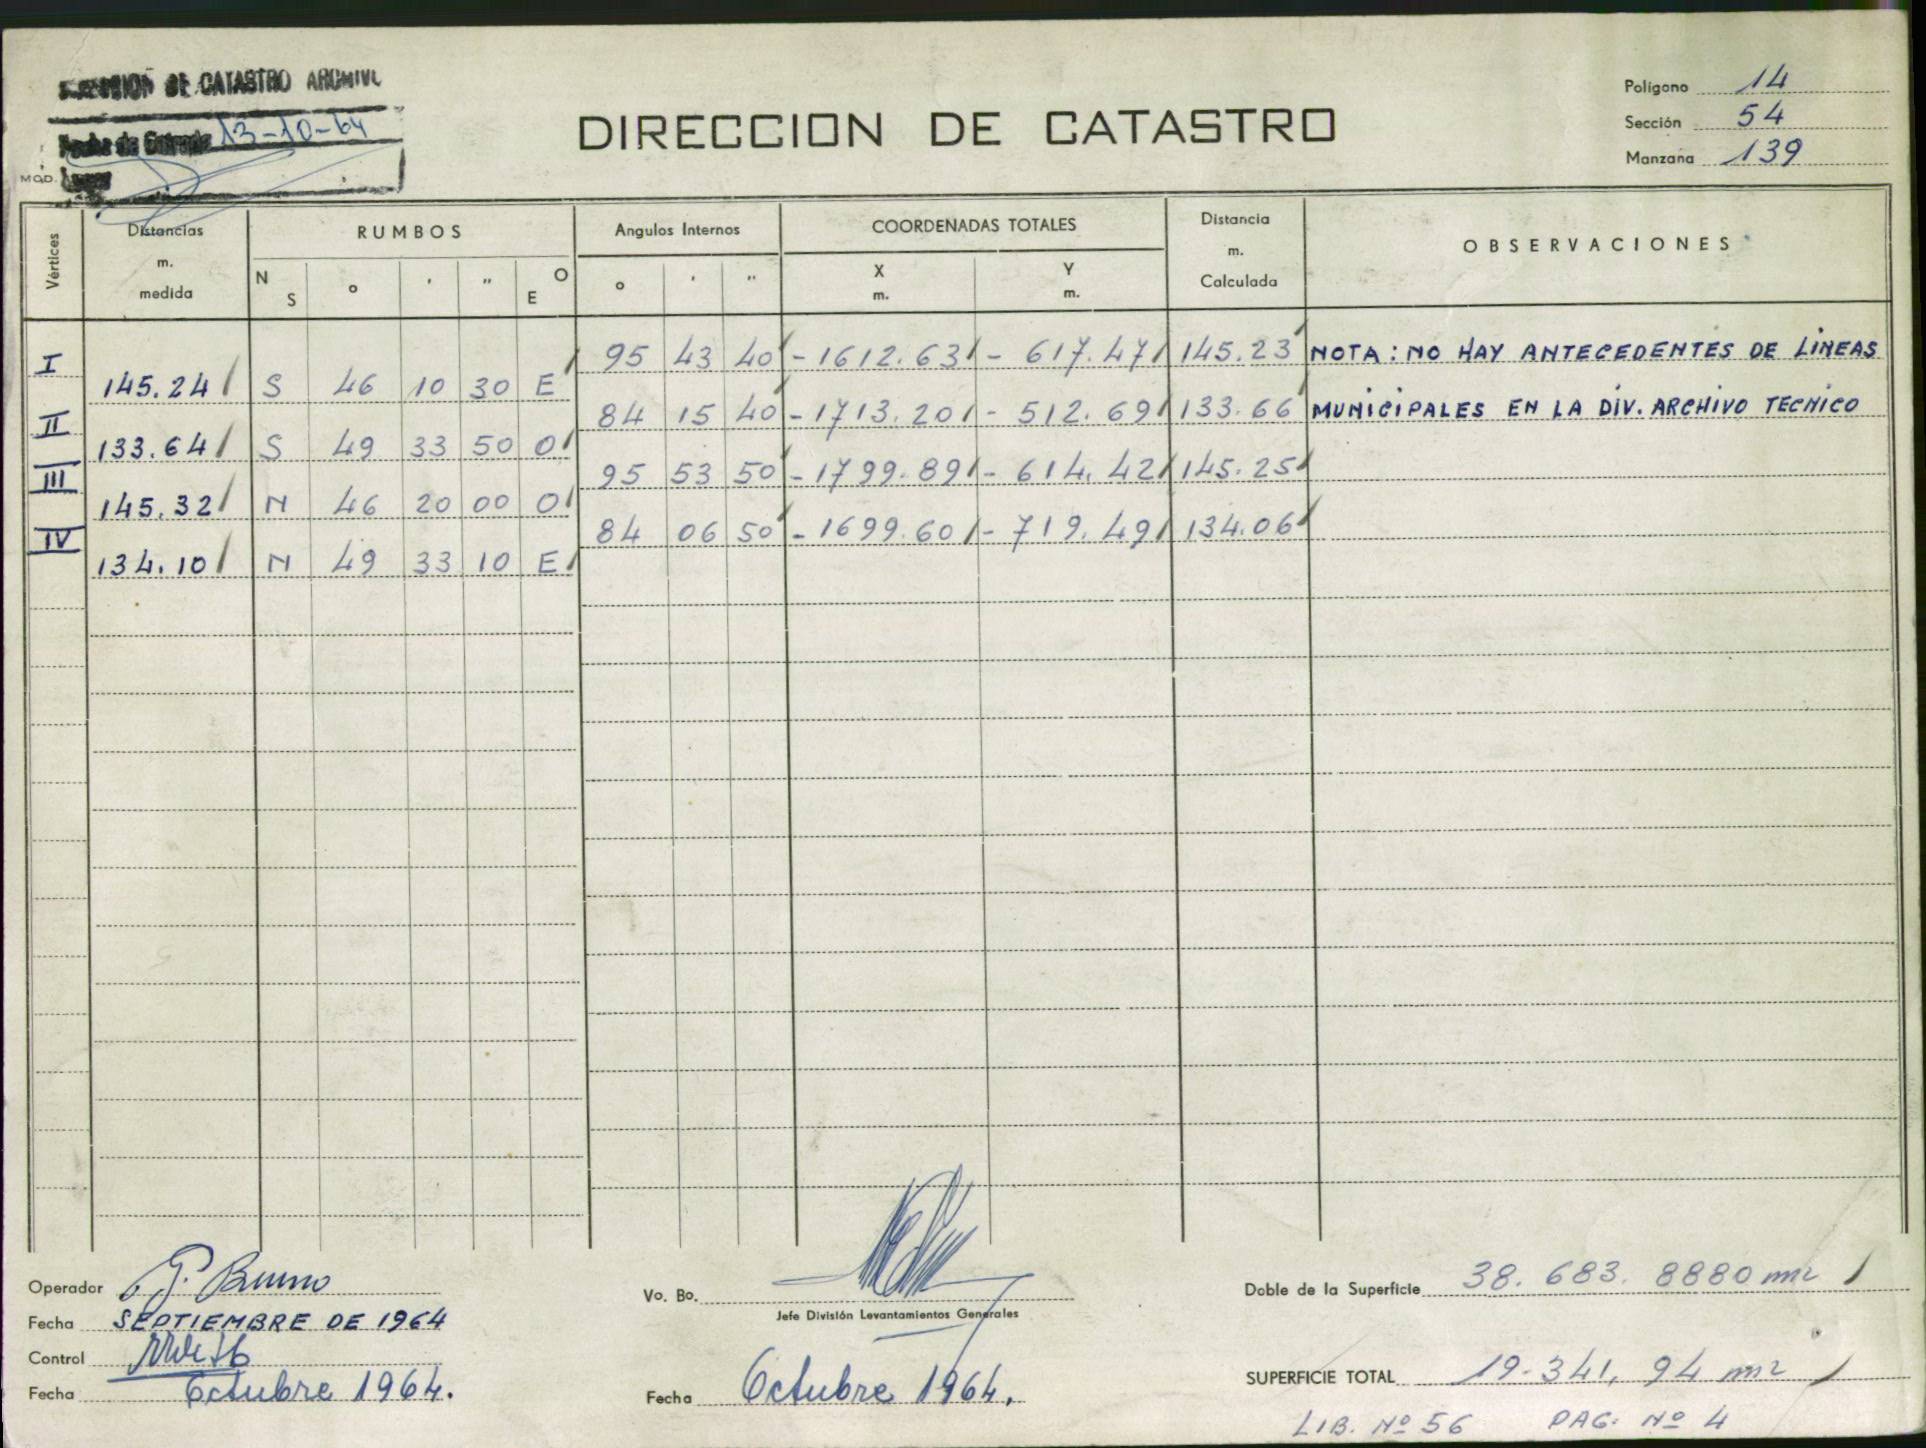 DE CATASTRO ARCHIVO
Fecha de Entrada 13-10-64
MOD.
DIRECCION DE CATASTRO
Polígono 14
Sección 54
Manzana 139
Vértices
Distancias m. medida
RUMBOS
N S ° ' " E O
Angulos Internos
° ' "
COORDENADAS TOTALES
X m. Y m.
Distancia m. Calculada
OBSERVACIONES
I 95 43 40 -1612.63 - 617.47 145.23 NOTA: NO HAY ANTECEDENTES DE LINEAS
145.24 S 46 10 30 E
II 84 15 40 -1713.20 - 512.69 133.66 MUNICIPALES EN LA DIV. ARCHIVO TECNICO
133.64 S 49 33 50 O
III 95 53 50 -1799.89 - 614.42 145.25
145.32 N 46 20 00 O
IV 84 06 50 -1699.60 - 719.49 134.06
134.10 N 49 33 10 E
Operador G. Bruno
Fecha SEPTIEMBRE DE 1964
Control
Fecha Octubre 1964.
Vo. Bo.
Jefe División Levantamientos Generales
Fecha Octubre 1964.
Doble de la Superficie 38.683.8880 m2
SUPERFICIE TOTAL 19.341,94 m2
LIB. Nº 56 PAG. Nº 4